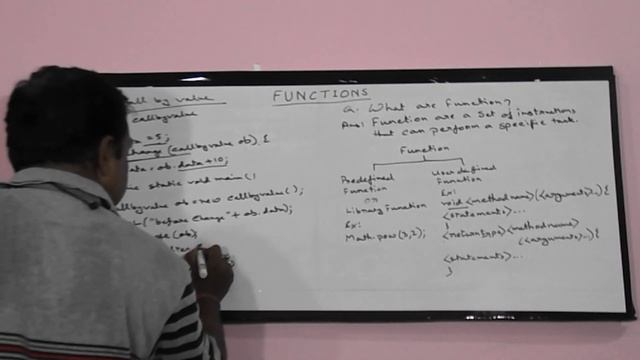 FUNCTIONS
all by value
callbyvalue
= 5;
change (callbyvalue ob) {
data = ob.data+10;
static void main(
callbyvalue ob = new callbyvalue();
("before change"+ ob.data);
(ob)
Q. What are Function?
Ans: Function are a set of instructions
that can perform a specific task.
Function
Predefined
Function
or
Library Function
Ex:
Math.pow(3,2);
User defined
Function
Ex:
void <method name>(<arguments>...){
<statements>...
}
<return type><method name>
(<arguments>...){
<statements>...
}